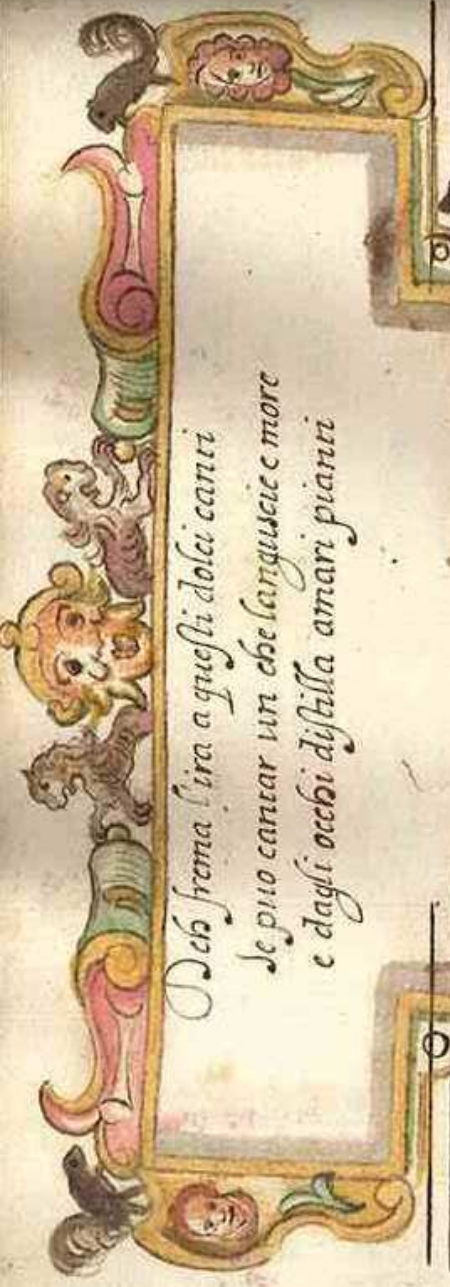 Deh frema l'ira a questi dolci canti
se puo cantar un che languisce e more
e dagli occhi distilla amari pianti